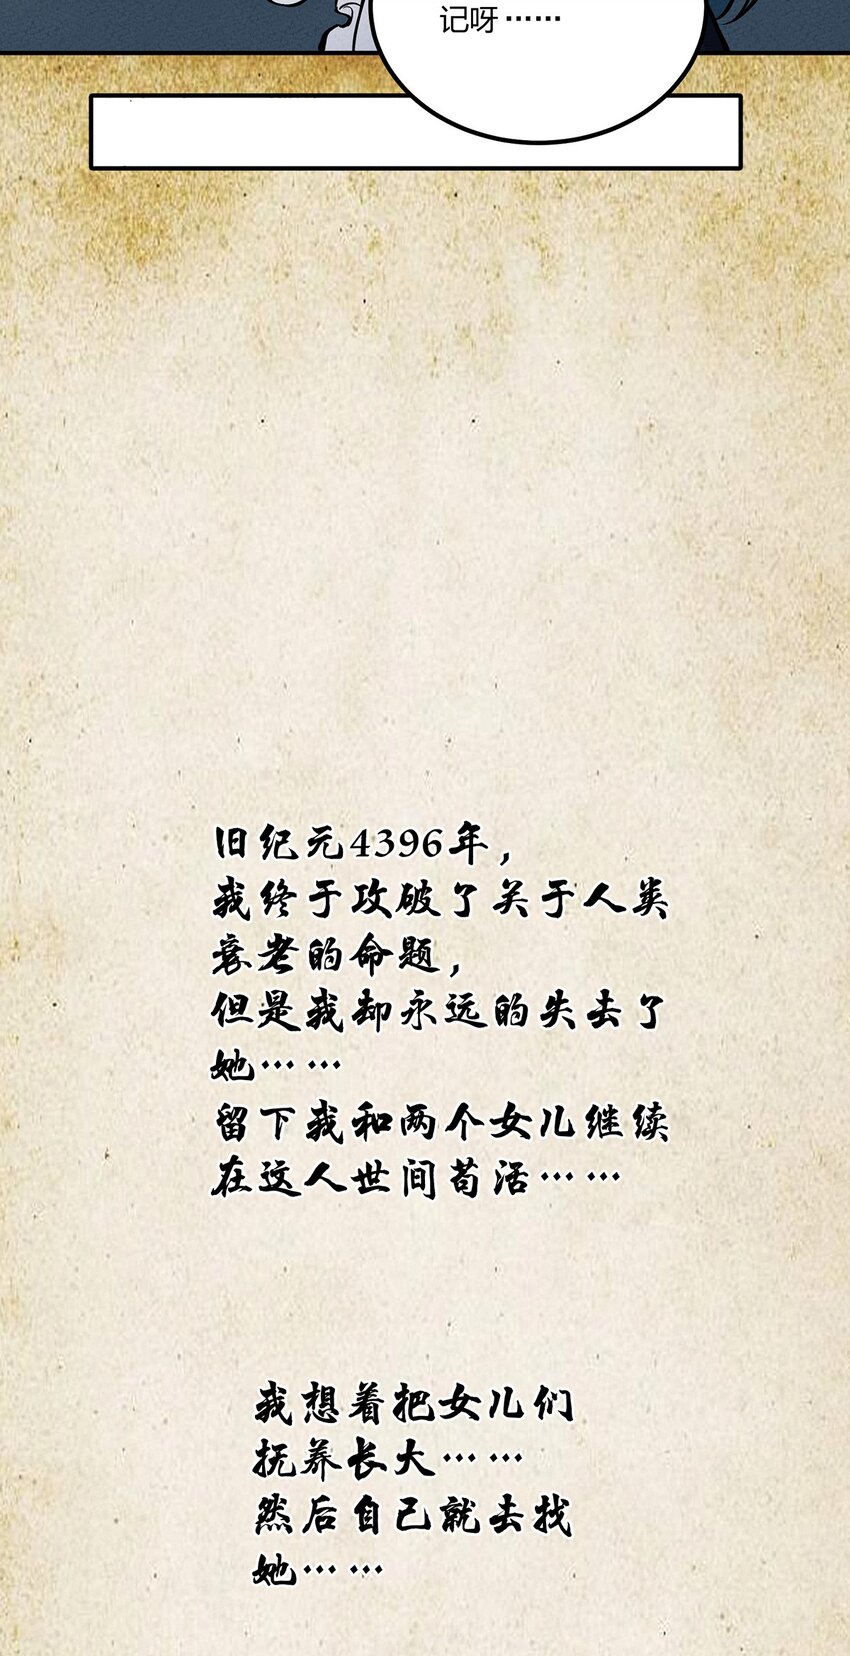 记呀……
旧纪元4396年，
我终于攻破了关于人类
衰老的命题，
但是我却永远的失去了
她……
留下我和两个女儿继续
在这人世间苟活……
我想着把女儿们
抚养长大……
然后自己就去找
她……